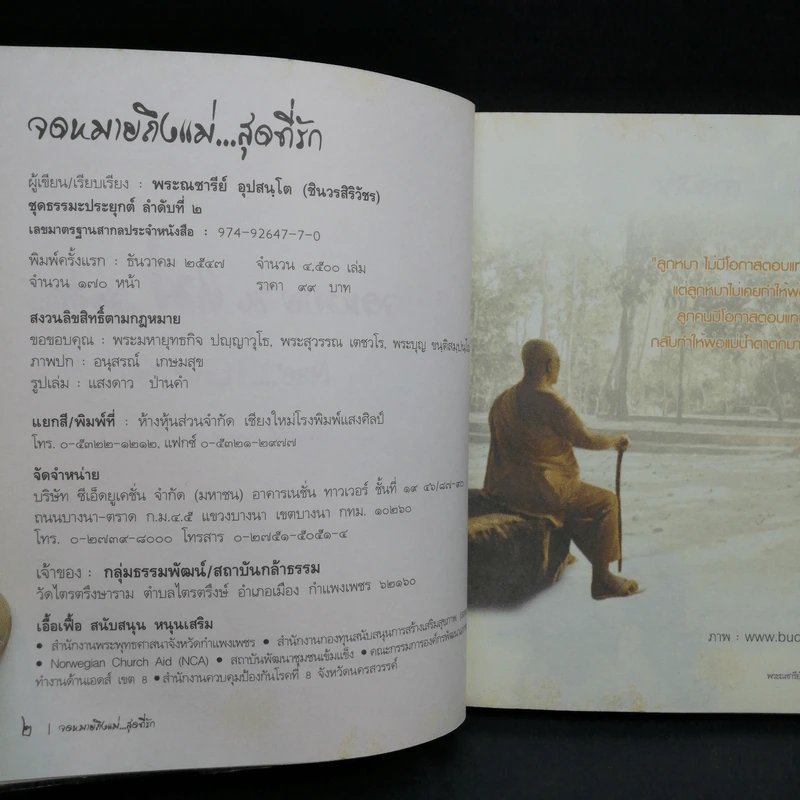 จดหมายถึงแม่...สุดที่รัก
ผู้เขียน/เรียบเรียง : พระณชารีย์ อุปสนฺโต (ชินวรสิริวัชร)
ชุดธรรมะประยุกต์ ลำดับที่ ๒
เลขมาตรฐานสากลประจำหนังสือ : 974-92647-7-0
พิมพ์ครั้งแรก : ธันวาคม ๒๕๔๗ จำนวน ๔,๕๐๐ เล่ม
จำนวน ๑๗๐ หน้า ราคา ๙๙ บาท
สงวนลิขสิทธิ์ตามกฎหมาย
ขอขอบคุณ : พระมหายุทธกิจ ปญฺญาวุโธ, พระสุวรรณ เตชวโร, พระบุญ
ภาพปก : อนุสรณ์ เกษมสุข
รูปเล่ม : แสงดาว ป่านคำ
แยกสี/พิมพ์ที่ : ห้างหุ้นส่วนจำกัด เชียงใหม่โรงพิมพ์แสงศิลป์
โทร. ๐-๕๓๒๒-๑๒๑๒, แฟกซ์ ๐-๕๓๒๑-๒๙๗๗
จัดจำหน่าย
บริษัท ซีเอ็ดยูเคชั่น จำกัด (มหาชน) อาคารเนชั่น ทาวเวอร์ ชั้นที่ ๑๙ ๔๖/๘๗-๙๐
ถนนบางนา-ตราด ก.ม.๔.๕ แขวงบางนา เขตบางนา กทม. ๑๐๒๖๐
โทร. ๐-๒๗๓๙-๘๐๐๐ โทรสาร ๐-๒๗๕๑-๕๐๕๑-๔
เจ้าของ : กลุ่มธรรมพัฒน์/สถาบันกล้าธรรม
วัดไตรตรึงษาราม ตำบลไตรตรึงษ์ อำเภอเมือง กำแพงเพชร ๖๒๑๖๐
เอื้อเฟื้อ สนับสนุน หนุนเสริม
• สำนักงานพระพุทธศาสนาจังหวัดกำแพงเพชร • สำนักงานกองทุนสนับสนุนการสร้างเสริมสุขภาพ
• Norwegian Church Aid (NCA) • สถาบันพัฒนาชุมชนเข้มแข็ง • คณะกรรมการองค์กรพัฒนา
ทำงานด้านเอดส์ เขต 8 •สำนักงานควบคุมป้องกันโรคที่ 8 จังหวัดนครสวรรค์
๒ | จดหมายถึงแม่...สุดที่รัก
"ลูกหมา ไม่มีโอกาสตอบแท
แต่ลูกหมาไม่เคยทำให้พ่อ
ลูกคนมีโอกาสตอบแท
กลับทำให้พ่อแม่น้ำตาตกมา
ภาพ : www.bud
พระณชารีย์